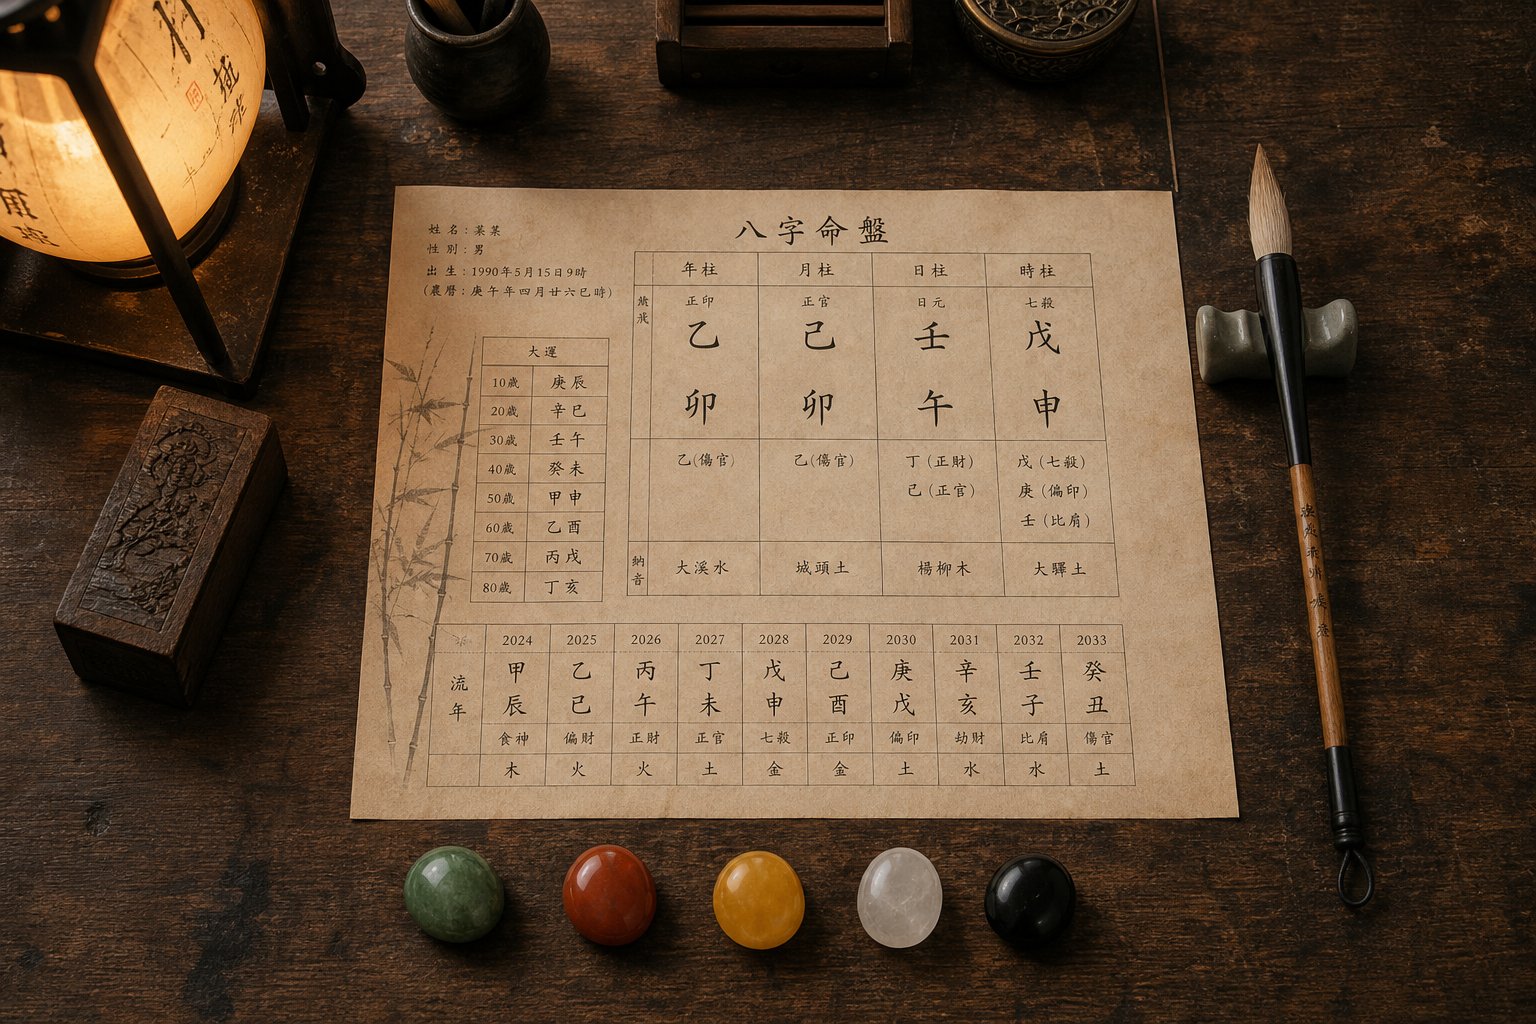 八字命盤
姓名：菉菓
性別：男
出生：1990年5月15日9時
（農曆：庚午年四月廿六巳時）
年柱 月柱 日柱 時柱
正印 正官 日元 七殺
乙 己 壬 戊
卯 卯 午 申
乙（傷官） 乙（傷官） 丁（正財） 戊（七殺）
己（正官） 庚（偏印）
壬（比肩）
納音 大溪水 城頭土 楊柳木 大驛土
大運
10歲 庚辰
20歲 辛巳
30歲 壬午
40歲 癸未
50歲 甲申
60歲 乙酉
70歲 丙戌
80歲 丁亥
2024 2025 2026 2027 2028 2029 2030 2031 2032 2033
流年
甲 乙 丙 丁 戊 己 庚 辛 壬 癸
辰 巳 午 未 申 酉 戌 亥 子 丑
食神 偏財 正財 正官 七殺 正印 偏印 劫財 比肩 傷官
木 火 火 土 金 金 土 水 水 土